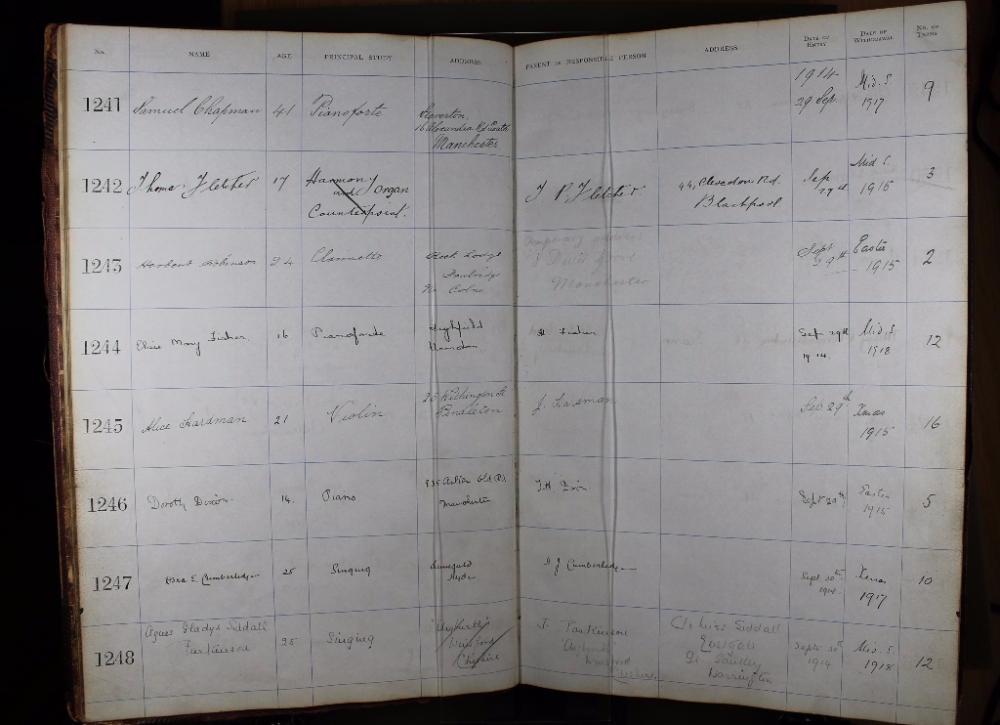 No. NAME AGE PRINCIPAL STUDY ADDRESS PARENT or RESPONSIBLE PERSON ADDRESS DATE OF ENTRY DATE OF WITHDRAWAL No. OF TERMS
1241 Samuel Chapman 41 Pianoforte
16 Alexandra Rd South
Manchester
1914
29 Sep
Mid. S.
1917
9
1242 Thomas Fletcher 17 Harmony
and Organ
Counterpoint.
T P. Fletcher
44, Clevedon Rd.
Blackpool
Sep
29th
Mid S.
1915
3
1243 Herbert Robinson 24
Lodge
Nr Colne
Temporary address
Grove
Manchester
Sept
29th
Easter
1915
2
1244 Elsie Mary Fisher 16 Pianoforte
Highfield
H Fisher
Sep 29th
1914.
Mid. S
1918
12
1245 Alice Hardman 21 Violin
Pendleton
J. Hardman
29th
Xmas
1915
16
1246 Dorothy Dixon 14. Piano
Manchester
T.H. Dixon
Sept
Easter
1915
5
1247 E. Cumberledge 25 Singing
Hyde
J Cumberledge
Sept 30th
1914
Xmas
1917
10
1248 Agnes Gladys Siddall
Parkinson
25 Singing
Winsford
Cheshire
J. Parkinson
Winsford
Cheshire
Siddall
Gt Sankey
Warrington
Sept 30th
1914
Mid. S.
1918
12